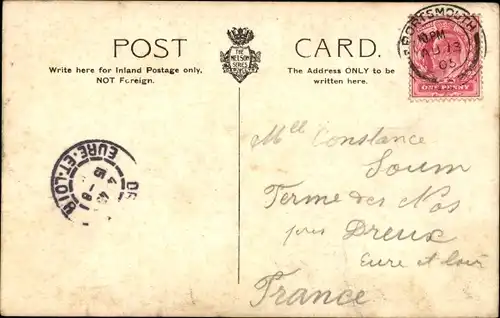 POST CARD.
THE NELSON SERIES
Write here for Inland Postage only,
NOT Foreign.
The Address ONLY to be
written here.
PORTSMOUTH
PM
AU 13
05
ONE PENNY
EURE-ET-LOIR
Mlle Constance
Soum
Ferme des Nos
près Dreux
Eure et Loir
France